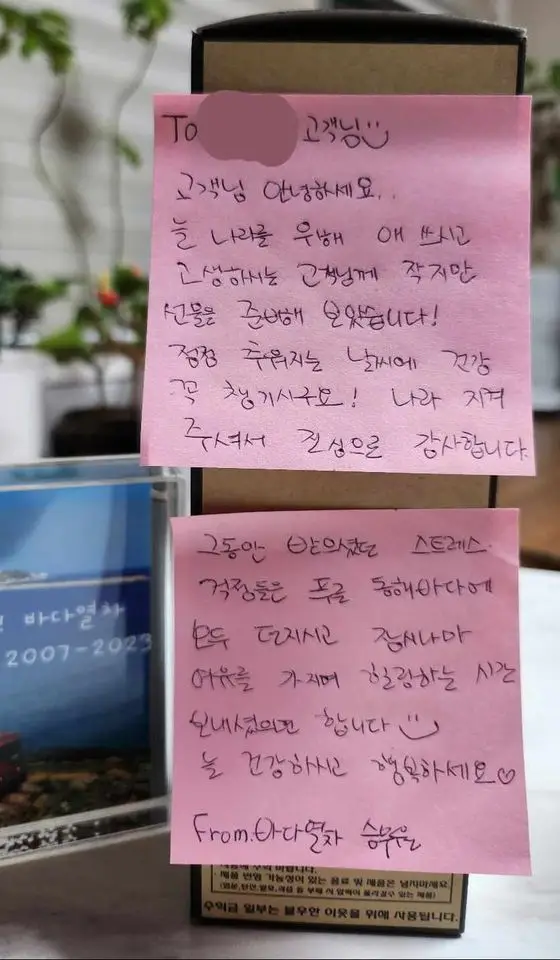 To 고객님
고객님 안녕하세요..
늘 나라를 위해 애 쓰시고
고생하시는 고객님께 작지만
선물을 준비해 보았습니다!
점점 추워지는 날씨에 건강
꼭 챙기시구요! 나라 지켜
주셔서 진심으로 감사합니다.
그동안 받으셨던 스트레스.
걱정들은 푸른 동해바다에
모두 던지시고 잠시나마
여유를 가지며 힐링하는 시간
보내셨으면 합니다
늘 건강하시고 행복하세요♡
From.바다열차 승무원
바다열차
2007-2023
제품 반영 가능성이 있는 음료 및 제품은 넣지마세요
수익금 일부는 불우한 이웃을 위해 사용됩니다.